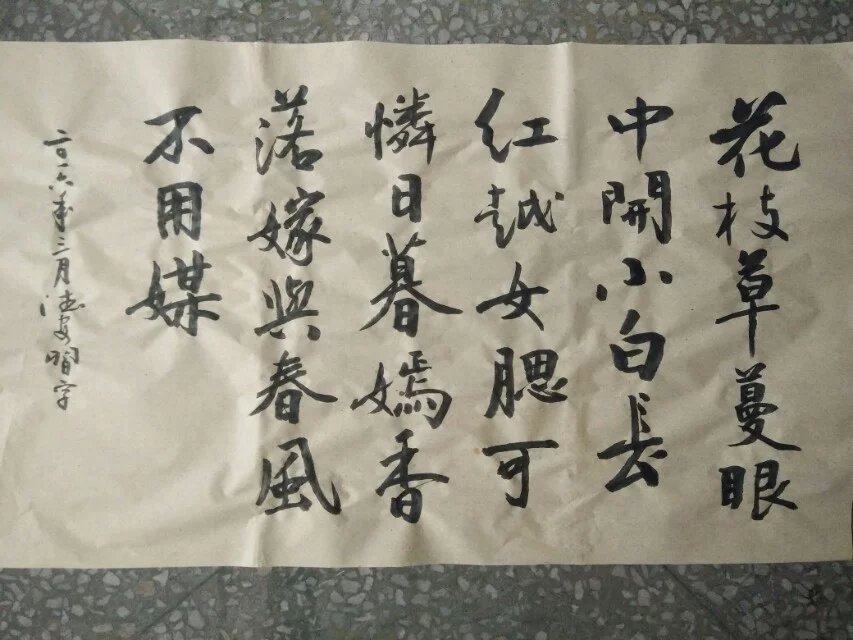 花枝草蔓眼
中開小白長
紅越女腮可
憐日暮嫣香
落嫁與春風
不用媒
二〇一六年三月
字